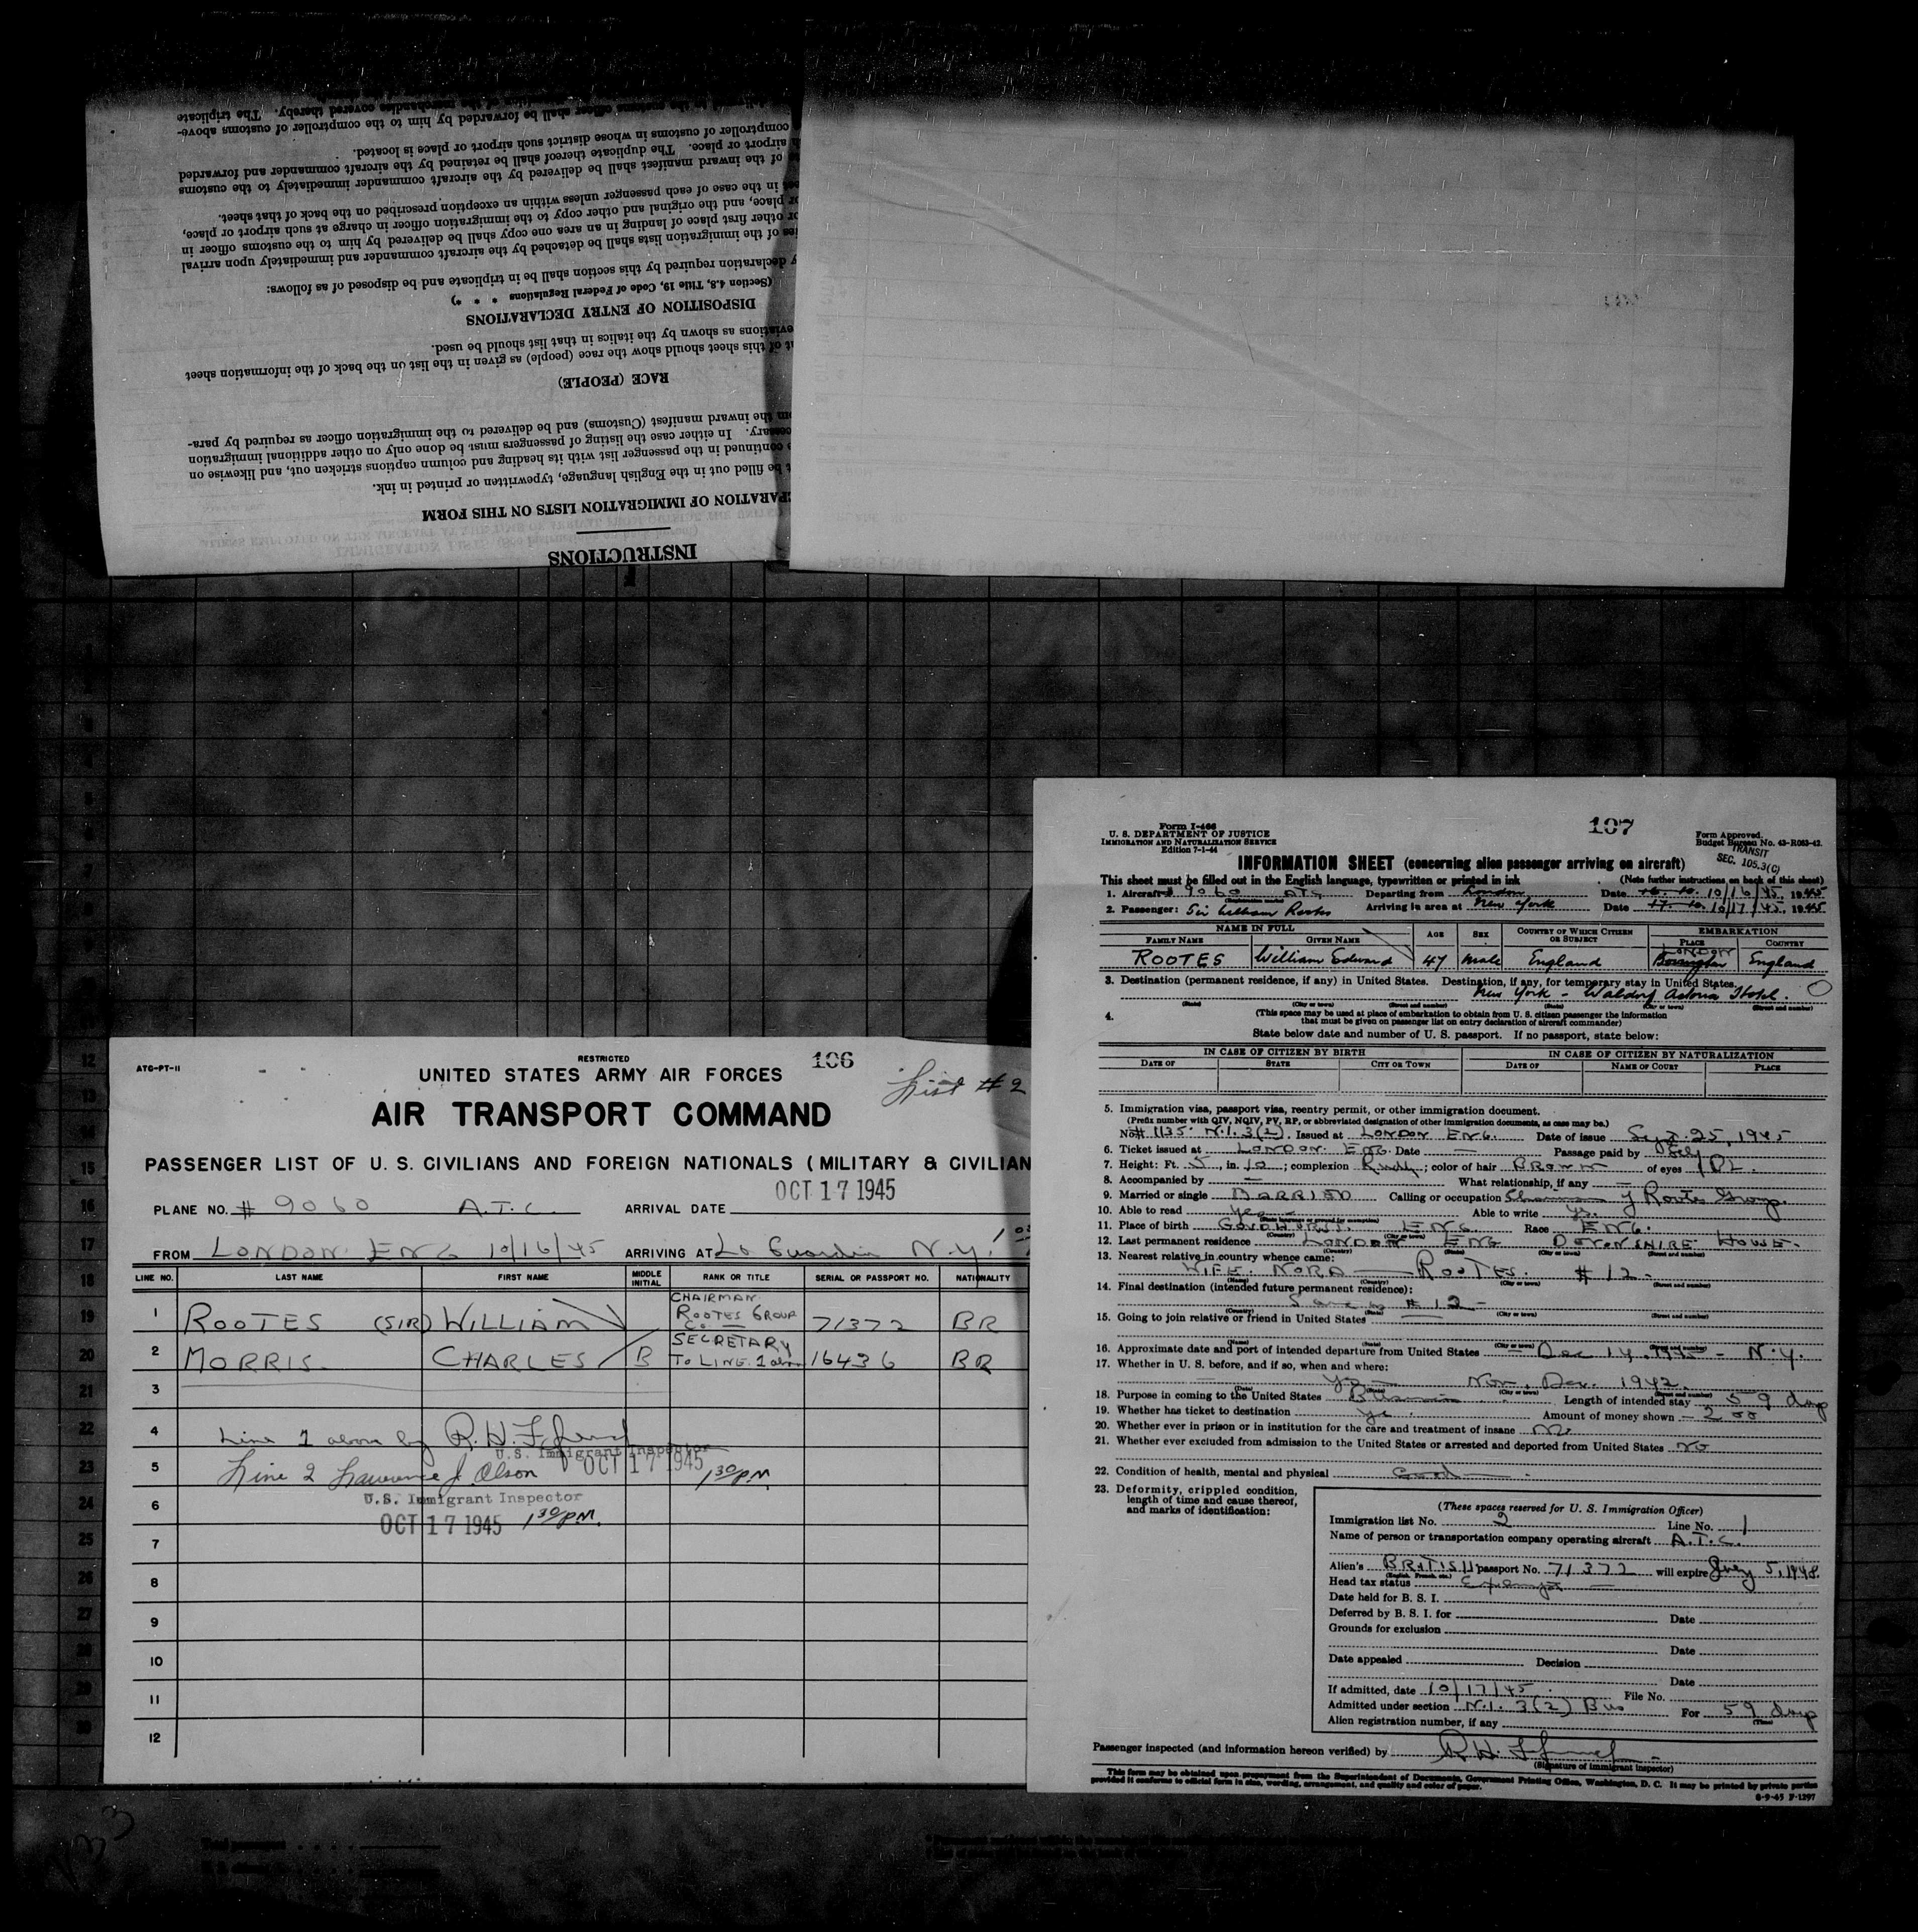 INSTRUCTIONS
PARATION OF IMMIGRATION LISTS ON THIS FORM
be filled out in the English language, typewritten or printed in ink.
continued in the passenger list with its heading and column captions stricken out, and likewise on
In either case the listing of passengers must be done only on other additional immigration
the inward manifest (Customs) and be delivered to the immigration officer as required by para-
RACE (PEOPLE)
of this sheet should show the race (people) as given in the list on the back of the information sheet
viations as shown by the italics in that list should be used.
DISPOSITION OF ENTRY DECLARATIONS
(Section 4.8, Title 19, Code of Federal Regulations * * *)
declaration required by this section shall be in triplicate and be disposed of as follows:
of the immigration lists shall be detached by the aircraft commander and immediately upon arrival
or other first place of landing in an area one copy shall be delivered by him to the customs officer in
or place, and the original and other copy to the immigration officer in charge at such airport or place,
in the case of each passenger unless within an exception prescribed on the back of that sheet.
of the inward manifest shall be delivered by the aircraft commander immediately to the customs
airport or place. The duplicate thereof shall be retained by the aircraft commander and forwarded
comptroller of customs in whose district such airport or place is located.
to the customs officer shall be forwarded by him to the comptroller of customs above-
merchandise covered thereby. The triplicate
ATC-PT-11
RESTRICTED
106
List #2
UNITED STATES ARMY AIR FORCES
AIR TRANSPORT COMMAND
PASSENGER LIST OF U. S. CIVILIANS AND FOREIGN NATIONALS (MILITARY & CIVILIAN
PLANE NO. # 9060 A.T.C. ARRIVAL DATE OCT 17 1945
FROM LONDON ENG 10/16/45 ARRIVING AT La Guardia N.Y.
LINE NO. LAST NAME FIRST NAME MIDDLE INITIAL RANK OR TITLE SERIAL OR PASSPORT NO. NATIONALITY
1 ROOTES (SIR) WILLIAM CHAIRMAN ROOTES GROUP Co. 71372 BR
2 MORRIS CHARLES B SECRETARY TO LINE 1 above 16436 BR
3
4 Line 1 above by
U.S. Immigrant Inspector
5 Line 2 Lawrence J. Olson OCT 17 1945 1 30 P.M.
U.S. Immigrant Inspector
6 OCT 17 1945 1 30 P.M.
7
8
9
10
11
12
12
13
14
15
16
17
18
19
20
21
22
23
24
25
26
27
Form I-466
U. S. DEPARTMENT OF JUSTICE
IMMIGRATION AND NATURALIZATION SERVICE
Edition 7-1-44
107
Form Approved.
Budget Bureau No. 43-R063-42.
TRANSIT
SEC. 105.3(C)
INFORMATION SHEET (concerning alien passenger arriving on aircraft)
This sheet must be filled out in the English language, typewritten or printed in ink (Note further instructions on back of this sheet)
1. Aircraft # 9060 ATC Departing from London Date 10/16/45, 1945
2. Passenger: Sir William Rootes Arriving in area at New York Date 10/17/45, 1945
NAME IN FULL AGE SEX COUNTRY OF WHICH CITIZEN OR SUBJECT EMBARKATION
FAMILY NAME GIVEN NAME PLACE COUNTRY
ROOTES William Edward 47 Male England LONDON England
3. Destination (permanent residence, if any) in United States. Destination, if any, for temporary stay in United States.
New York - Waldorf Astoria Hotel.
(State) (City or town) (Street and number) (State) (City or town) (Street and number)
4. (This space may be used at place of embarkation to obtain from U. S. citizen passenger the information
that must be given on passenger list on entry declaration of aircraft commander)
State below date and number of U. S. passport. If no passport, state below:
IN CASE OF CITIZEN BY BIRTH IN CASE OF CITIZEN BY NATURALIZATION
DATE OF STATE CITY OR TOWN DATE OF NAME OF COURT PLACE
5. Immigration visa, passport visa, reentry permit, or other immigration document.
(Prefix number with QIV, NQIV, PV, RP, or abbreviated designation of other immigration documents, as case may be.)
No. # 1135 N.I. 3(2). Issued at LONDON ENG. Date of issue Sept. 25, 1945
6. Ticket issued at LONDON ENG. Date — Passage paid by Self
7. Height: Ft. 5, in. 10; complexion Ruddy; color of hair BROWN of eyes BL.
8. Accompanied by — What relationship, if any —
9. Married or single MARRIED Calling or occupation Chairman of Rootes Group.
10. Able to read Yes Able to write Yes.
11. Place of birth GOUDHURST ENG. Race ENG.
12. Last permanent residence LONDON ENG DEVONSHIRE HOUSE.
13. Nearest relative in country whence came:
WIFE. NORA — ROOTES. # 12.
14. Final destination (intended future permanent residence):
Same as # 12 -
15. Going to join relative or friend in United States —
16. Approximate date and port of intended departure from United States — Dec 14, 1945 - N.Y.
17. Whether in U. S. before, and if so, when and where:
Yes — Nov, Dec. 1942.
18. Purpose in coming to the United States Business Length of intended stay 59 days
19. Whether has ticket to destination yes. Amount of money shown — 200
20. Whether ever in prison or in institution for the care and treatment of insane No
21. Whether ever excluded from admission to the United States or arrested and deported from United States No
22. Condition of health, mental and physical Good
23. Deformity, crippled condition,
length of time and cause thereof,
and marks of identification:
(These spaces reserved for U. S. Immigration Officer)
Immigration list No. 2 Line No. 1
Name of person or transportation company operating aircraft A.T.C.
Alien's BRITISH passport No. 71372 will expire July 5, 1948.
Head tax status Exempt —
Date held for B. S. I.
Deferred by B. S. I. for Date
Grounds for exclusion
Date
Date appealed Decision
Date
If admitted, date 10/17/45. File No.
Admitted under section N.I. 3(2) Bus For 59 days
(Time)
Alien registration number, if any
Passenger inspected (and information hereon verified) by
(Signature of immigrant inspector)
This form may be obtained upon prepayment from the Superintendent of Documents, Government Printing Office, Washington, D. C. It may be printed by private parties
provided it conforms to official form in size, wording, arrangement, and quality and color of paper.
8-9-45 F-1297